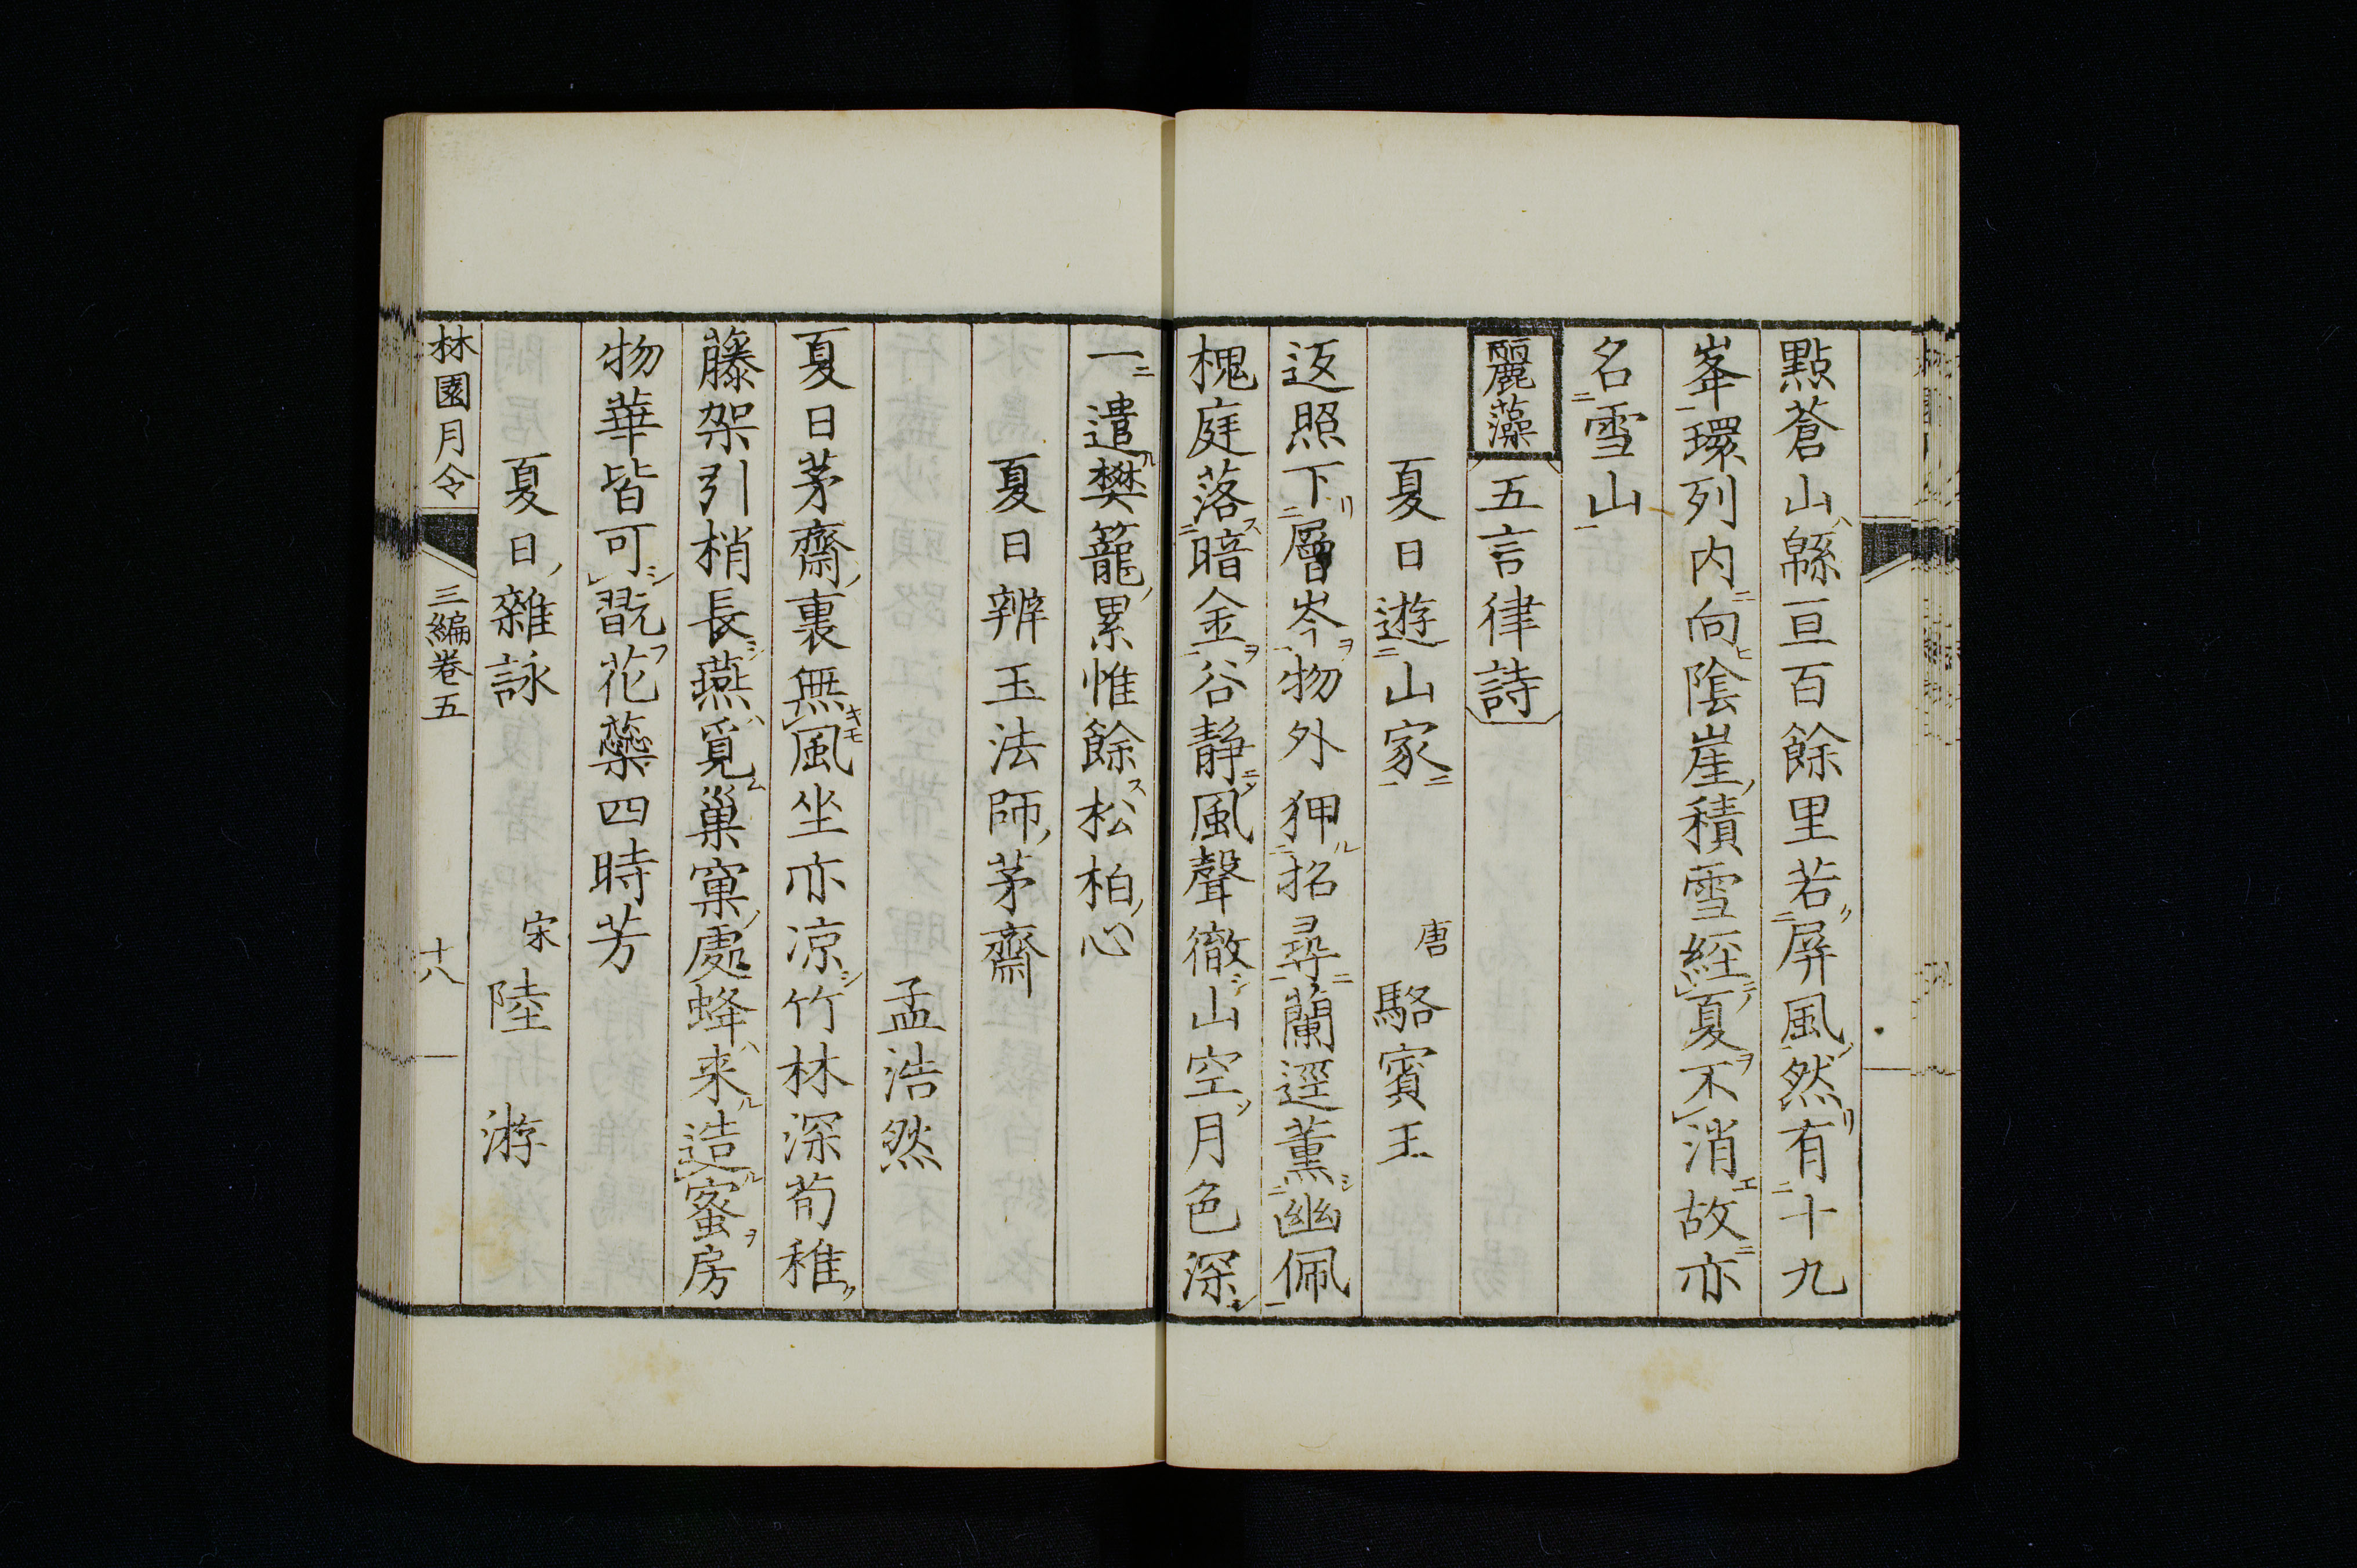 點蒼山緜亘百餘里若屏風然有十九
峯環列内向陰崖積雪経夏不消故亦
名雪山
麗藻 五言律詩
夏日遊山家 唐 駱賓王
返照下層岑物外狎招尋蘭逕薫幽佩
槐庭落暗金谷静風聲徹山空月色深
一遣樊籠累惟餘松柏心
夏日辨玉法師茅齋
孟浩然
夏日茅齋裏無風坐亦凉竹林深荀稚
藤架引梢長燕覓巢窠處蜂来造蜜房
物華皆可翫花蘂四時芳
夏日雜詠 宋 陸游
林園月令 三編巻五 十八